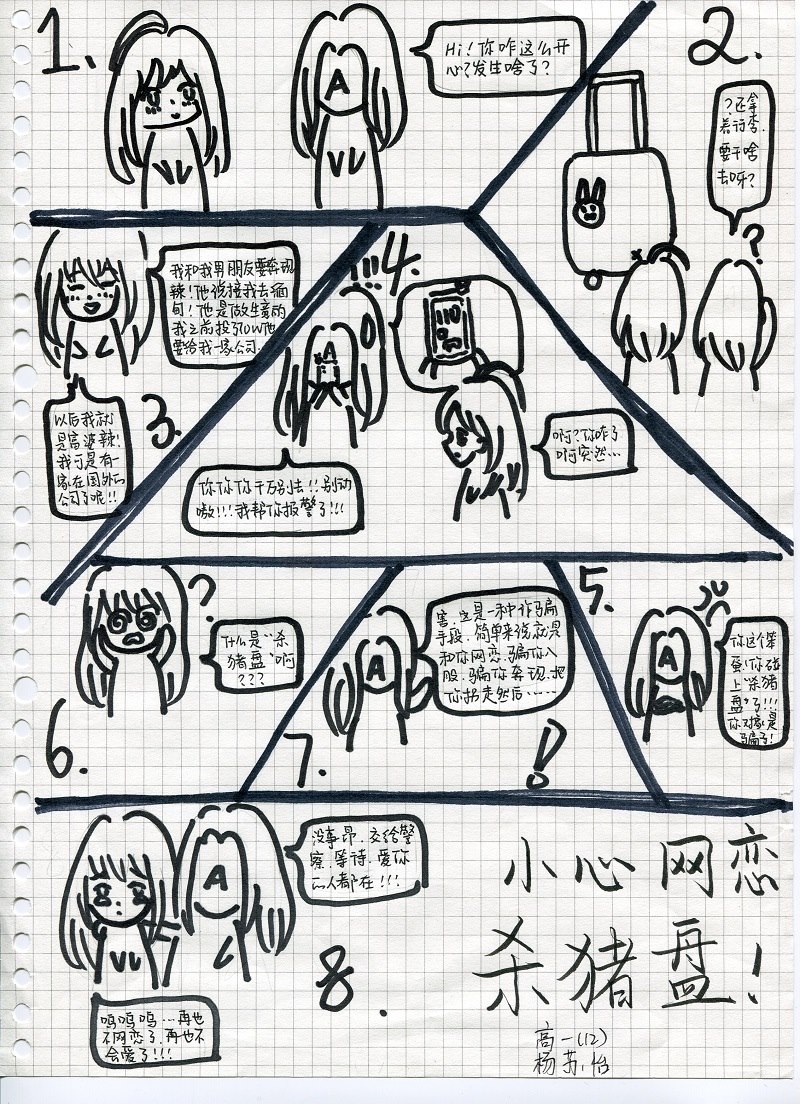 1.
A
Hi！你咋这么开
心？发生啥了？
2.
？还拿
着行李.
要干啥
去呀？
?
我和我男朋友要奔现
辣！他说接我去缅
甸！他是做生意的
我之前投了10W他
要给我一家公司.
以后我就
是富婆辣！
我可是有一
家在国外的
公司了呢！！
3.
!!!
4.
A
110
你你你千万别去！！别动
嗷！！！我帮你报警了！！！
啊？你咋了
啊突然…
5.
A
你这个笨
蛋！你碰
上“杀猪
盘”了！！！
你对象是
骗子！
6.
?
什么是“杀
猪盘”啊
？？？
7.
A
害.这是一种诈骗
手段.简单来说就是
和你网恋.骗你入
股.骗你奔现.把
你拐走然后……
!
8.
A
没事昂.交给警
察.等待.爱你
的人都在！！！
呜呜呜…再也
不网恋了.再也不
会爱了！！！
小心网恋
杀猪盘！
高一(12)
杨苏怡